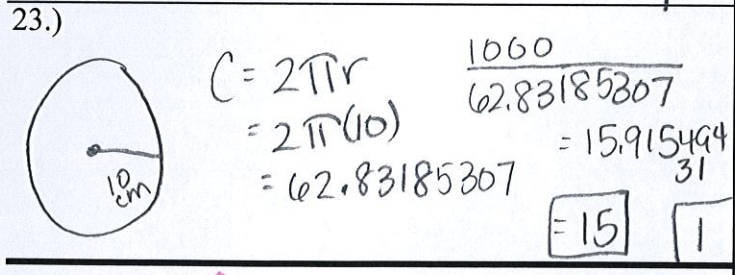 23.)
10
cm
C = 2πr
= 2π(10)
= 62.83185307
1000
62.83185307
= 15.915494
31
= 15
1